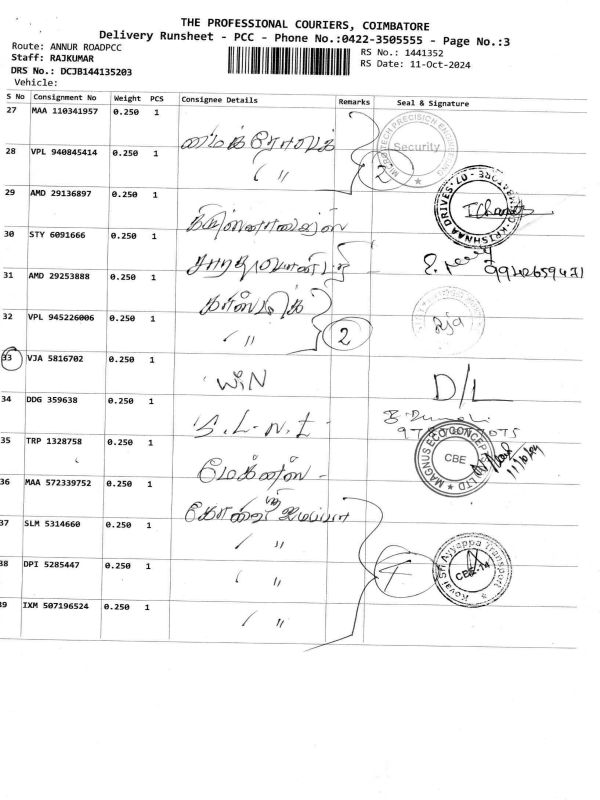 THE PROFESSIONAL COURIERS, COIMBATORE
Delivery Runsheet - PCC - Phone No.:0422-3505555 - Page No.:3
Route: ANNUR ROADPCC
Staff: RAJKUMAR
DRS No.: DCJB144135203
Vehicle:
RS No.: 1441352
RS Date: 11-Oct-2024
S No Consignment No Weight PCS Consignee Details Remarks Seal & Signature
27 MAA 110341957 0.250 1 மைக்ரோடெக்
MICROTECH PRECISION ENGINEERING
Security
28 VPL 940845414 0.250 1 〃 2
29 AMD 29136897 0.250 1
KRISHNAA DRIVES
30 STY 6091666 0.250 1
9942659431
31 AMD 29253888 0.250 1
32 VPL 945226006 0.250 1 〃 2
33 VJA 5816702 0.250 1 WIN D/L
34 DDG 359638 0.250 1 S.L.N.E
35 TRP 1328758 0.250 1 மேக்னஸ் -
MAGNUS ECO CONCEPT LTD
CBE
11/10/24
36 MAA 572339752 0.250 1 கோவை ஸ்ரீ ஐயப்பா
37 SLM 5314660 0.250 1 〃
38 DPI 5285447 0.250 1 〃 4
Kovai Sri Ayyappa Transport
CBE-14
39 IXM 507196524 0.250 1 〃